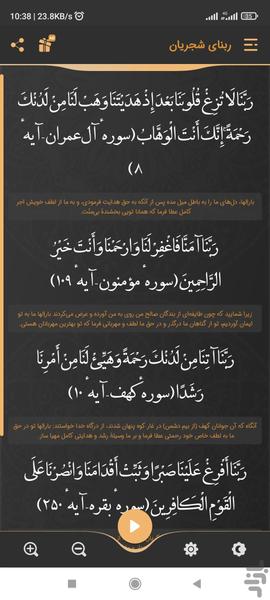 10:38 | 23.8KB/s
ربنای شجریان
رَبَّنَا لَا تُزِغْ قُلُوبَنَا بَعْدَ إِذْ هَدَيْتَنَا وَهَبْ لَنَا مِنْ لَدُنْكَ
رَحْمَةً إِنَّكَ أَنْتَ الْوَهَّابُ (سوره آل عمران-آیه
۸)
بارالها، دل‌های ما را به باطل میل مده پس از آنکه به حق هدایت فرمودی، و به ما از لطف خویش اجر
کامل عطا فرما که همانا تویی بخشندهٔ بی‌منّت.
رَبَّنَا آمَنَّا فَاغْفِرْ لَنَا وَارْحَمْنَا وَأَنْتَ خَيْرُ
الرَّاحِمِينَ (سوره مؤمنون-آیه ۱۰۹)
زیرا شمایید که چون طایفه‌ای از بندگان صالح من روی به من آورده و عرض می‌کردند بارالها ما به تو
ایمان آوردیم، تو از گناهان ما درگذر و در حق ما لطف و مهربانی فرما که تو بهترین مهربانان هستی.
رَبَّنَا آتِنَا مِنْ لَدُنْكَ رَحْمَةً وَهَيِّئْ لَنَا مِنْ أَمْرِنَا
رَشَدًا (سوره کهف-آیه ۱۰)
آنگاه که آن جوانان کهف (از بیم دشمن) در غار کوه پنهان شدند، از درگاه خدا خواستند: بارالها تو در حق
ما به لطف خاص خود رحمتی عطا فرما و بر ما وسیلهٔ رشد و هدایتی کامل مهیا ساز.
رَبَّنَا أَفْرِغْ عَلَيْنَا صَبْرًا وَثَبِّتْ أَقْدَامَنَا وَانْصُرْنَا عَلَى
الْقَوْمِ الْكَافِرِينَ (سوره بقره-آیه ۲۵۰)
بازار